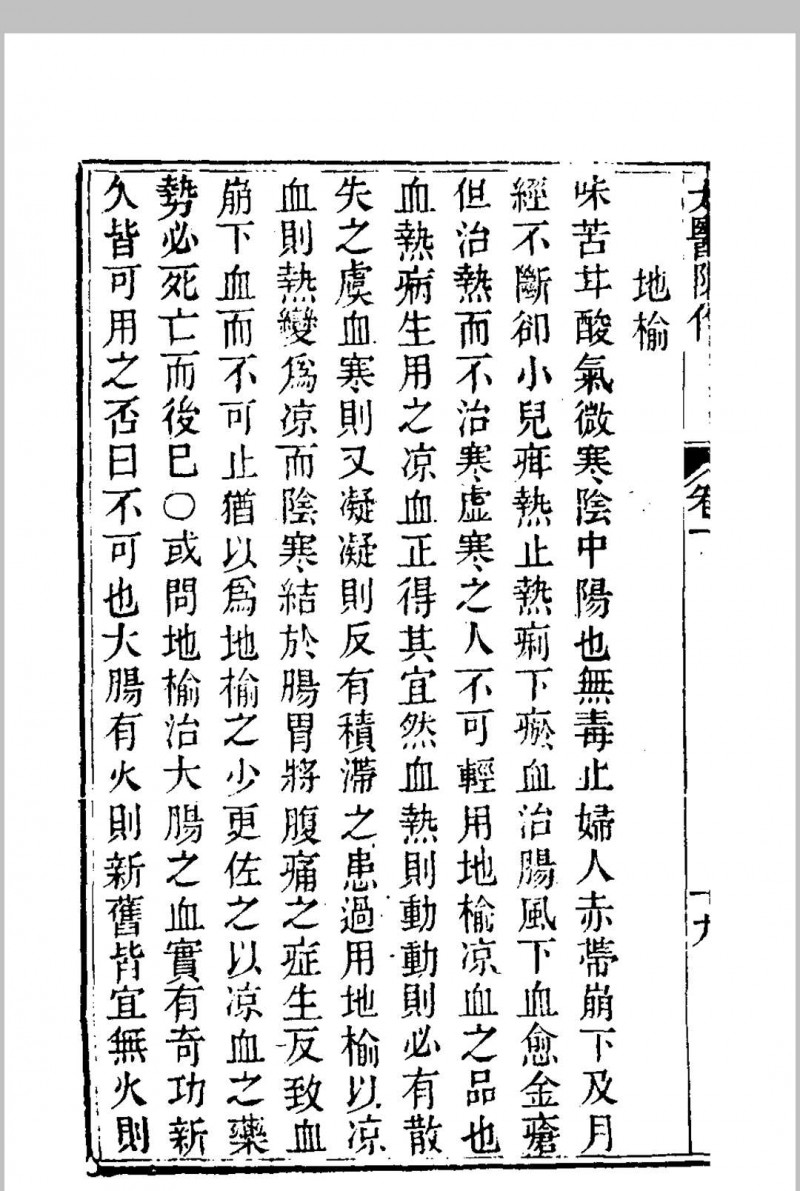 卷一
十九
地榆
味苦甘酸氣微寒陰中陽也無毒止婦人赤帶崩下及月
經不斷卻小兒疳熱止熱痢下瘀血治腸風下血愈金瘡
但治熱而不治寒虛寒之人不可輕用地榆凉血之品也
血熱病生用之凉血正得其宜然血熱則動動則必有散
失之虞血寒則又凝凝則反有積滯之患過用地榆以凉
血則熱變爲凉而陰寒結於腸胃將腹痛之症生反致血
崩下血而不可止猶以爲地榆之少更佐之以凉血之藥
勢必死亡而後已〇或問地榆治大腸之血實有奇功新
久皆可用之否曰不可也大腸有火則新舊皆宜無火則